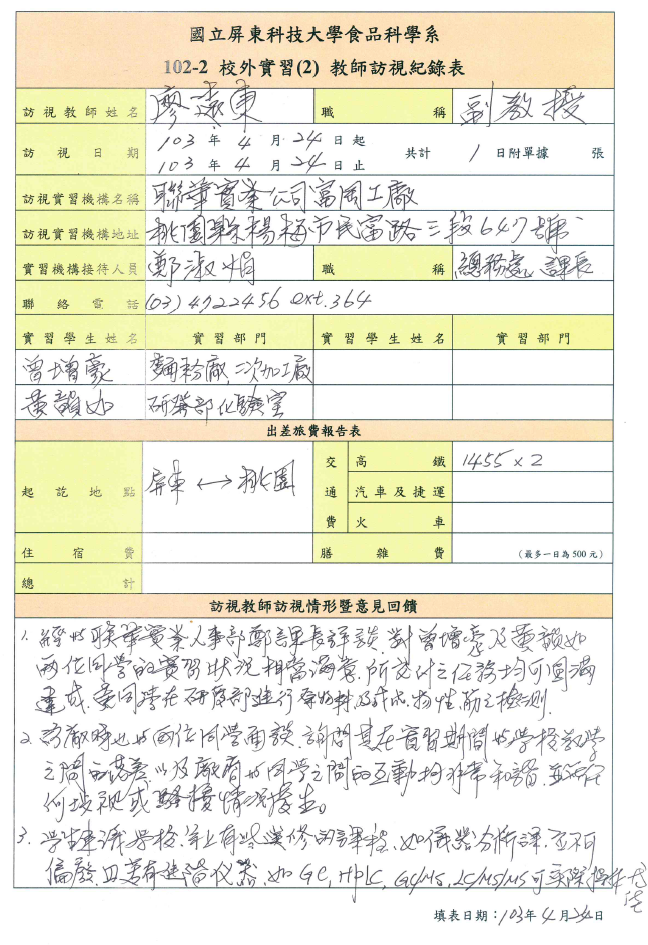 國立屏東科技大學食品科學系
102-2 校外實習(2) 教師訪視紀錄表
訪視教師姓名 廖遠東 職稱 副教授
訪視日期 103 年 4 月 24 日起 共計 1 日附單據 張
103 年 4 月 24 日止
訪視實習機構名稱 聯華實業公司富岡工廠
訪視實習機構地址 桃園縣楊梅市民富路三段647號
實習機構接待人員 鄭淑娟 職稱 總務處 課長
聯絡電話 (03) 4722456 ext. 364
實習學生姓名 實習部門 實習學生姓名 實習部門
曾增豪 麵粉廠,二次加工廠
黃韻如 研發部化驗室
出差旅費報告表
起訖地點 屏東 ↔ 桃園 交通費 高鐵 1455 x 2
汽車及捷運
火車
住宿費 膳雜費 (最多一日為500元)
總計
訪視教師訪視情形暨意見回饋
1. 經與聯華實業人事部鄭課長詳談,對曾增豪及黃韻如
兩位同學的實習狀況相當滿意,所交付之任務均可圓滿
達成,黃同學在研發部進行原物料及成品物性之檢測.
2. 訪廠時也與兩位同學面談,詢問其在實習期間與學校教學
之間的落差,以及廠商與同學之間的互動均非常和諧,並沒任
何歧視或騷擾情況發生。
3. 學生建議學校 有些選修的課程,如儀器分析課,不可
偏廢,且若有進階儀器,如 GC, HPLC, GC/MS, LC/MS/MS 可實際操作
填表日期:103年4月24日